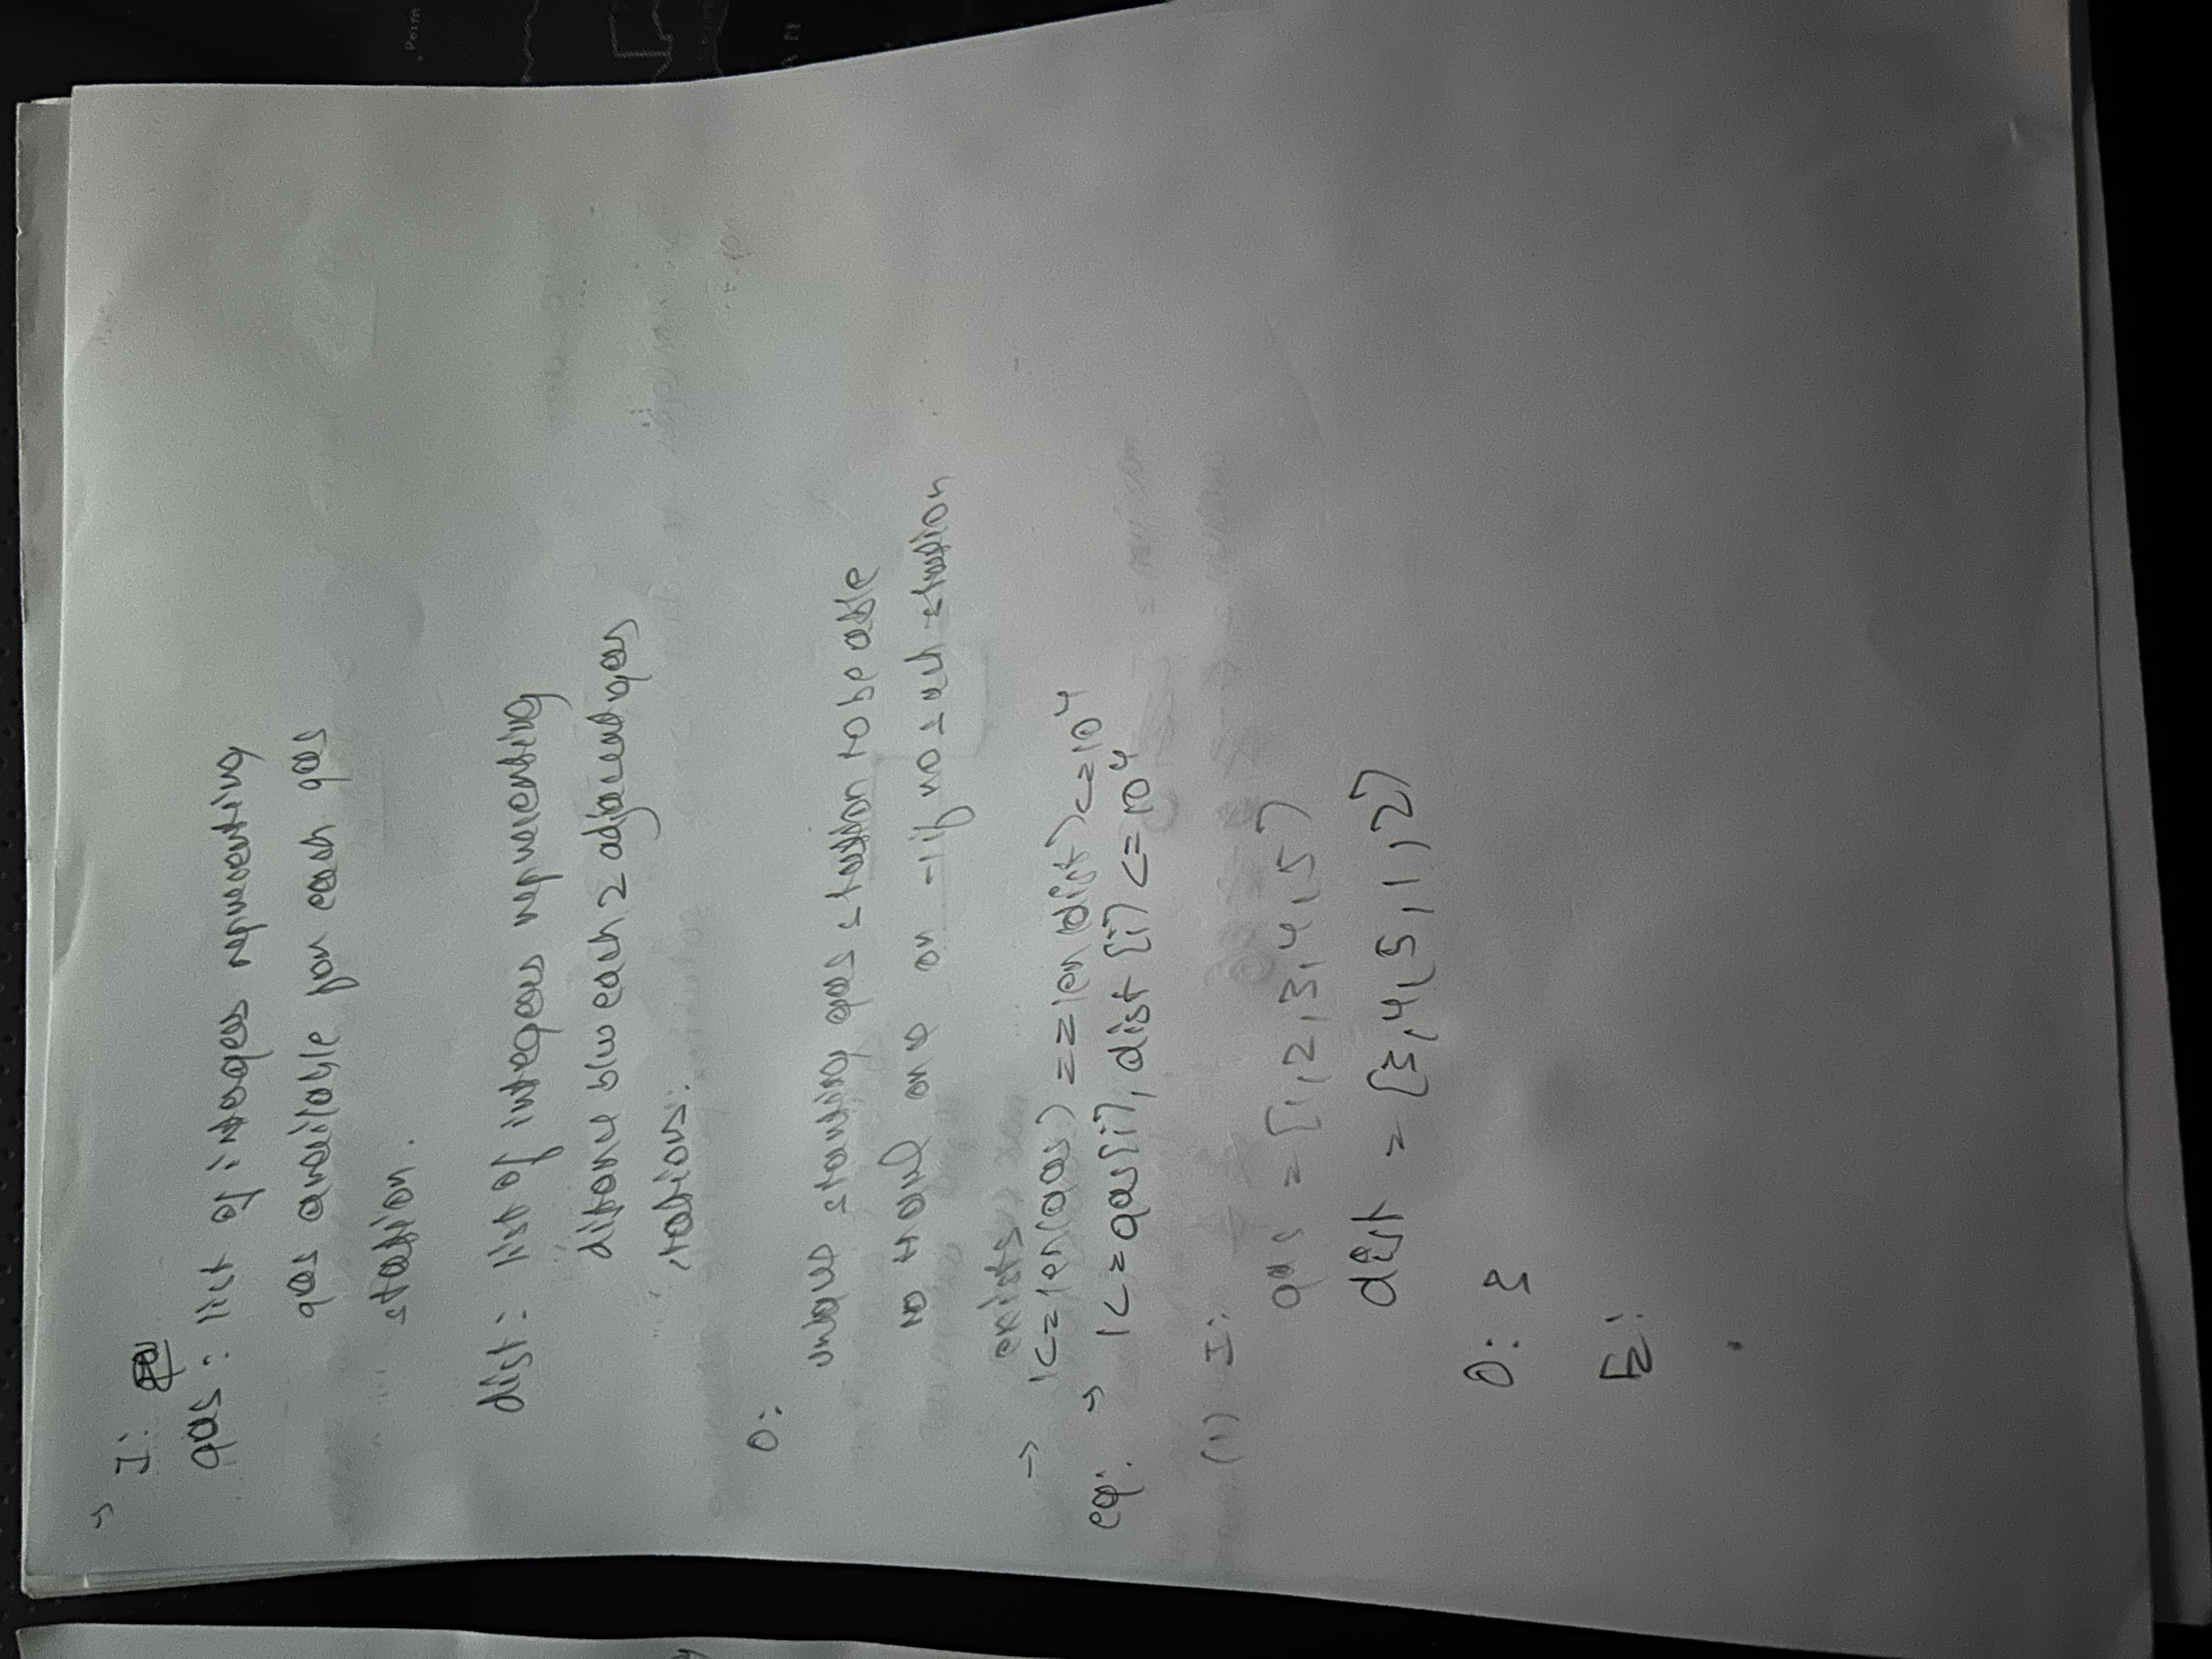 → I:
gas : list of integers representing
gas available for each gas
station.
dist: list of integers representing
distance b/w each 2 adjacent gas
stations.
O:
unique starting gas station to be able
to travel once or -1 if no such station
exists
→ 1<=len(gas)==len(dist)<=10^4
eg: → 1<=gas[i], dist[i]<=10^4
(1) I:
gas = [1,2,3,4,5]
dist = [3,4,5,1,2]
O: 3
E: